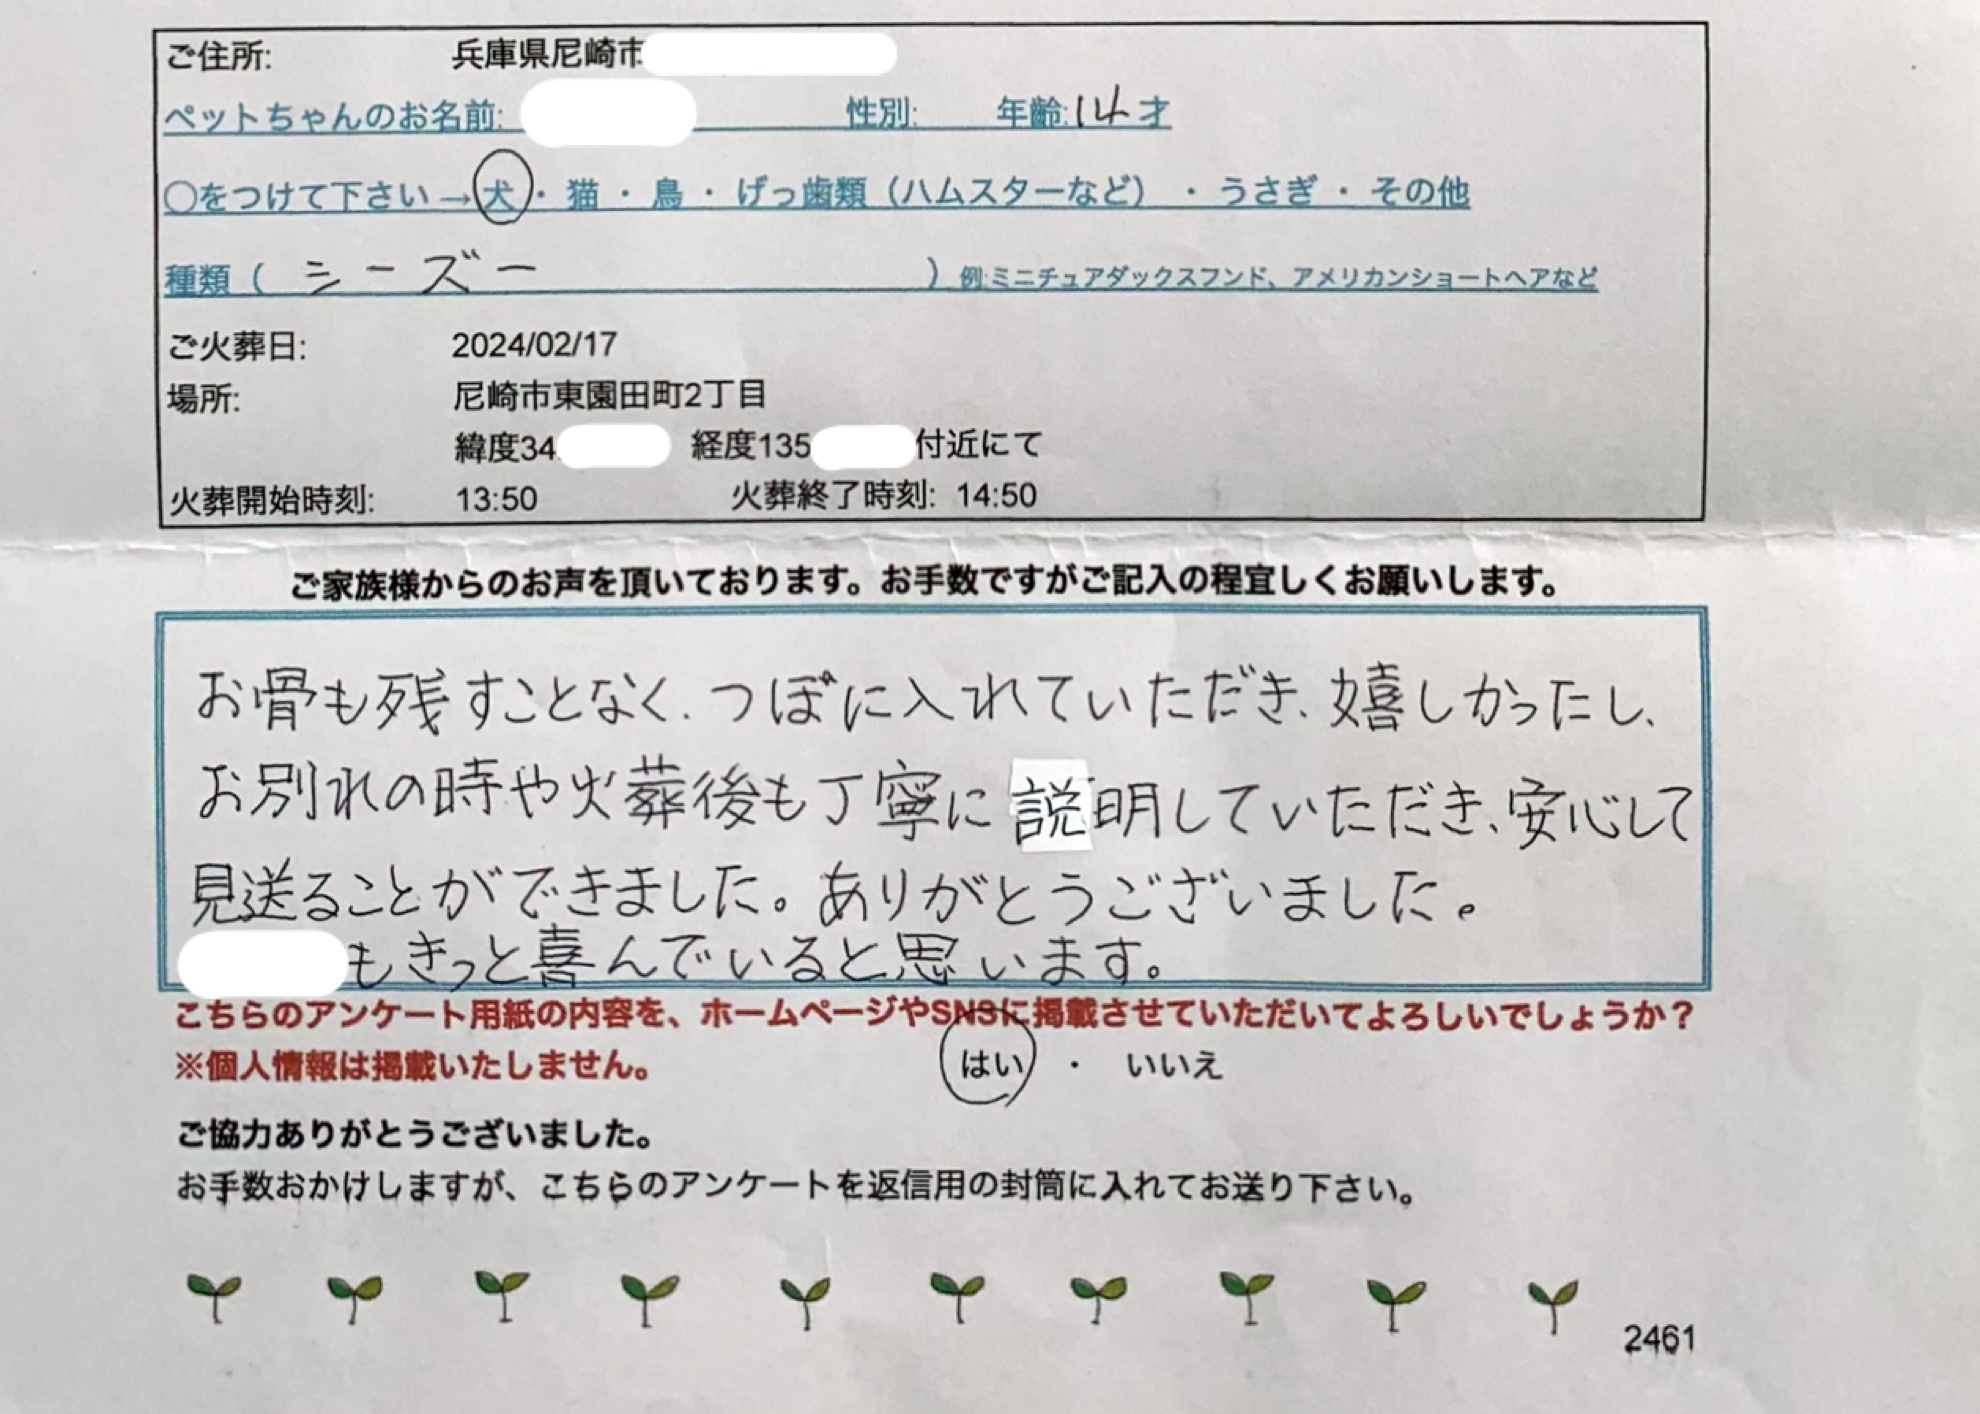 ご住所: 兵庫県尼崎市
ペットちゃんのお名前: 性別: 年齢:14才
○をつけて下さい→犬・猫・鳥・げっ歯類（ハムスターなど）・うさぎ・その他
種類（ シーズー ）例:ミニチュアダックスフンド、アメリカンショートヘアなど
ご火葬日: 2024/02/17
場所: 尼崎市東園田町2丁目
緯度34. 経度135 付近にて
火葬開始時刻: 13:50 火葬終了時刻: 14:50
ご家族様からのお声を頂いております。お手数ですがご記入の程宜しくお願いします。
お骨も残すことなく、つぼに入れていただき、嬉しかったし、
お別れの時や火葬後も丁寧に説明していただき、安心して
見送ることができました。ありがとうございました。
もきっと喜んでいると思います。
こちらのアンケート用紙の内容を、ホームページやSNSに掲載させていただいてよろしいでしょうか？
※個人情報は掲載いたしません。 はい ・ いいえ
ご協力ありがとうございました。
お手数おかけしますが、こちらのアンケートを返信用の封筒に入れてお送り下さい。
2461